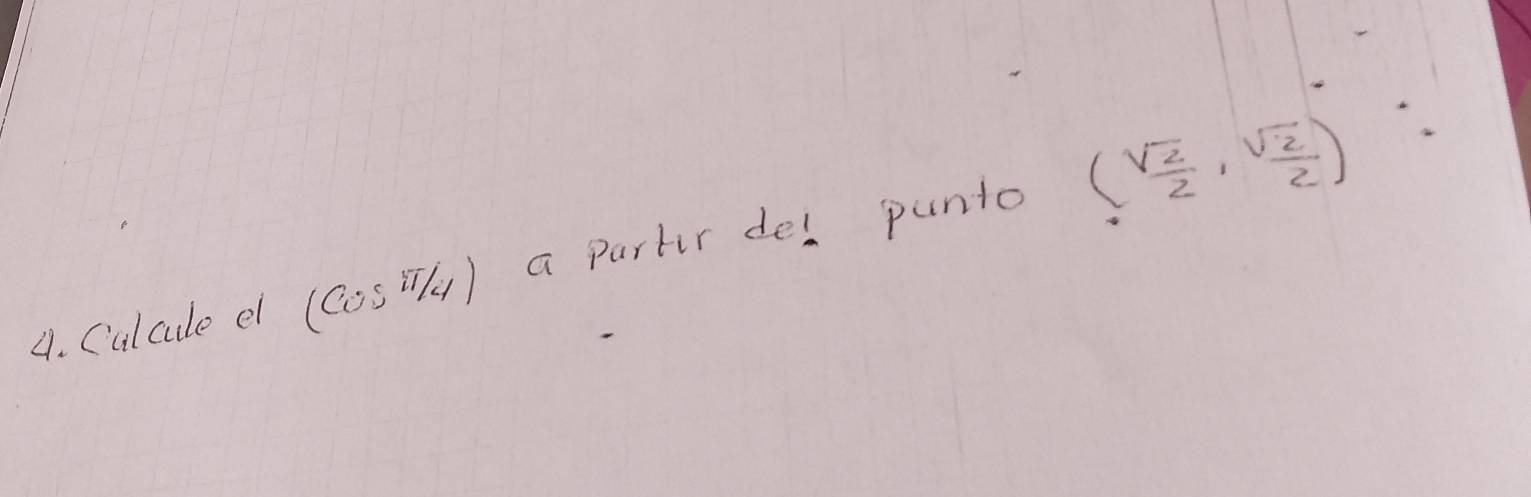 4. Calcule el (Cos π/4) a Partir del punto (√2/2, √2/2)